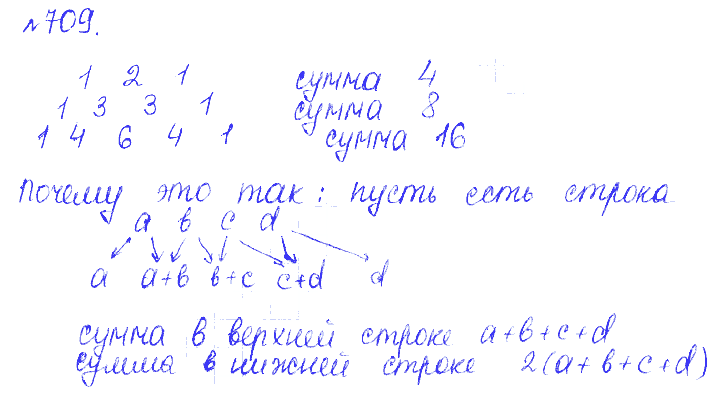 №709.
1 2 1 сумма 4
1 3 3 1 сумма 8
1 4 6 4 1 сумма 16
Почему это так: пусть есть строка
a b c d
a a+b b+c c+d d
сумма в верхней строке a+b+c+d
сумма в нижней строке 2(a+b+c+d)